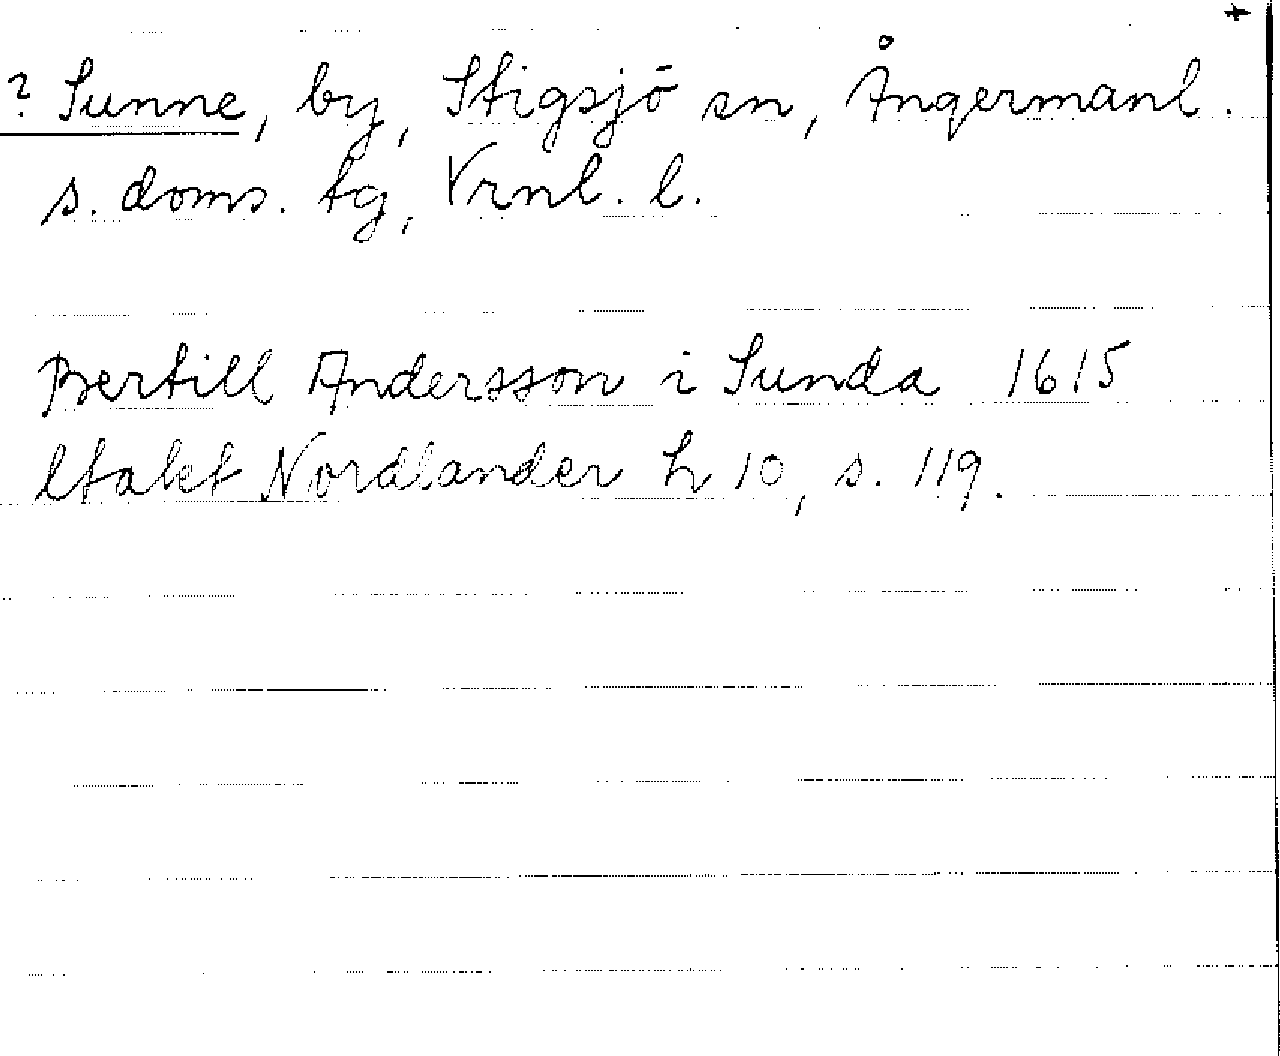 +
? Sunne, by, Stigsjö sn, Ångermanl.
s. doms. tg, Vrnl. l.
Bertill Andersson i Sunda 1615
Utalet Nordlander h 10, s. 119.